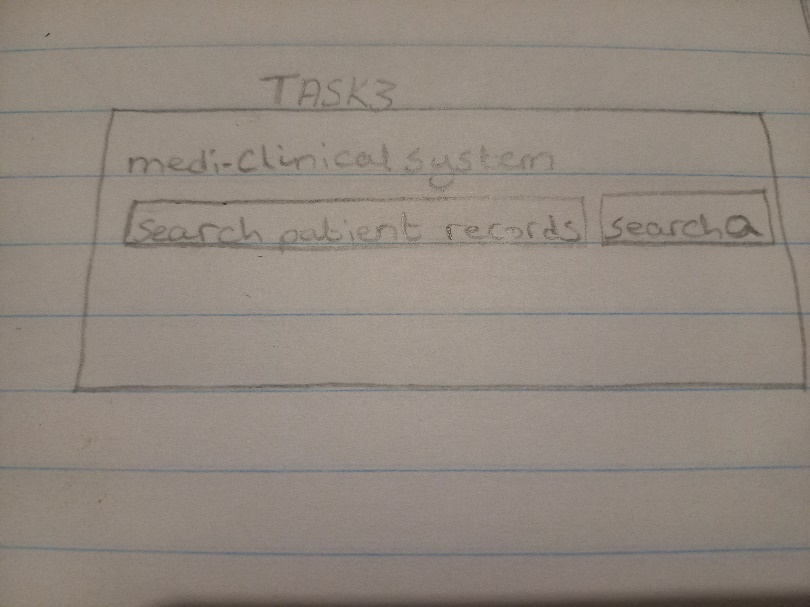 TASK3
medi-clinical system
search patient records searcha